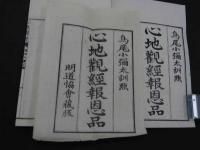 鳥尾小彌太訓點
心地觀經報恩品
鳥尾小彌太訓點
心地觀經報恩品
明道協會藏版